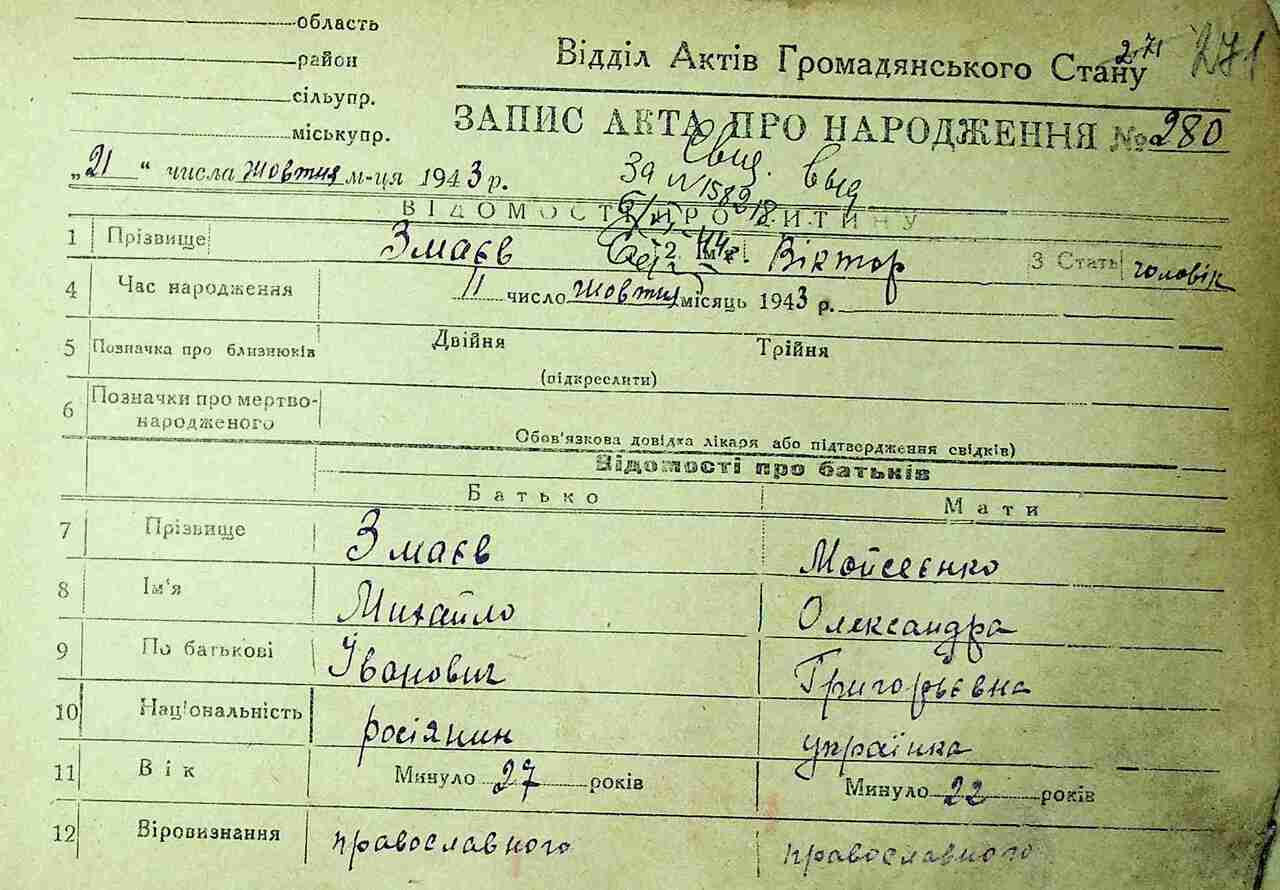 область
район
сільупр.
міськупр.
Відділ Актів Громадянського Стану
271
271
ЗАПИС АКТА ПРО НАРОДЖЕННЯ № 280
„21“ числа жовтня м-ця 1943 р.
За
ВІДОМОСТІ ПРО ДИТИНУ
1 Прізвище Змаєв 2. Ім'я Віктор 3 Стать чоловік
4 Час народження 11 число жовтня місяць 1943 р.
5 Позначка про близнюків Двійня Трійня
(підкреслити)
6 Позначки про мертво-
народженого
Обов'язкова довідка лікаря або підтвердження свідків)
Відомості про батьків
Батько Мати
7 Прізвище Змаєв Мойсеєнко
8 Ім'я Михайло Олександра
9 По батькові Іванович Григорьєвна
10 Національність росіянин українка
11 Вік Минуло 27 років Минуло 22 років
12 Віровизнання православного православного